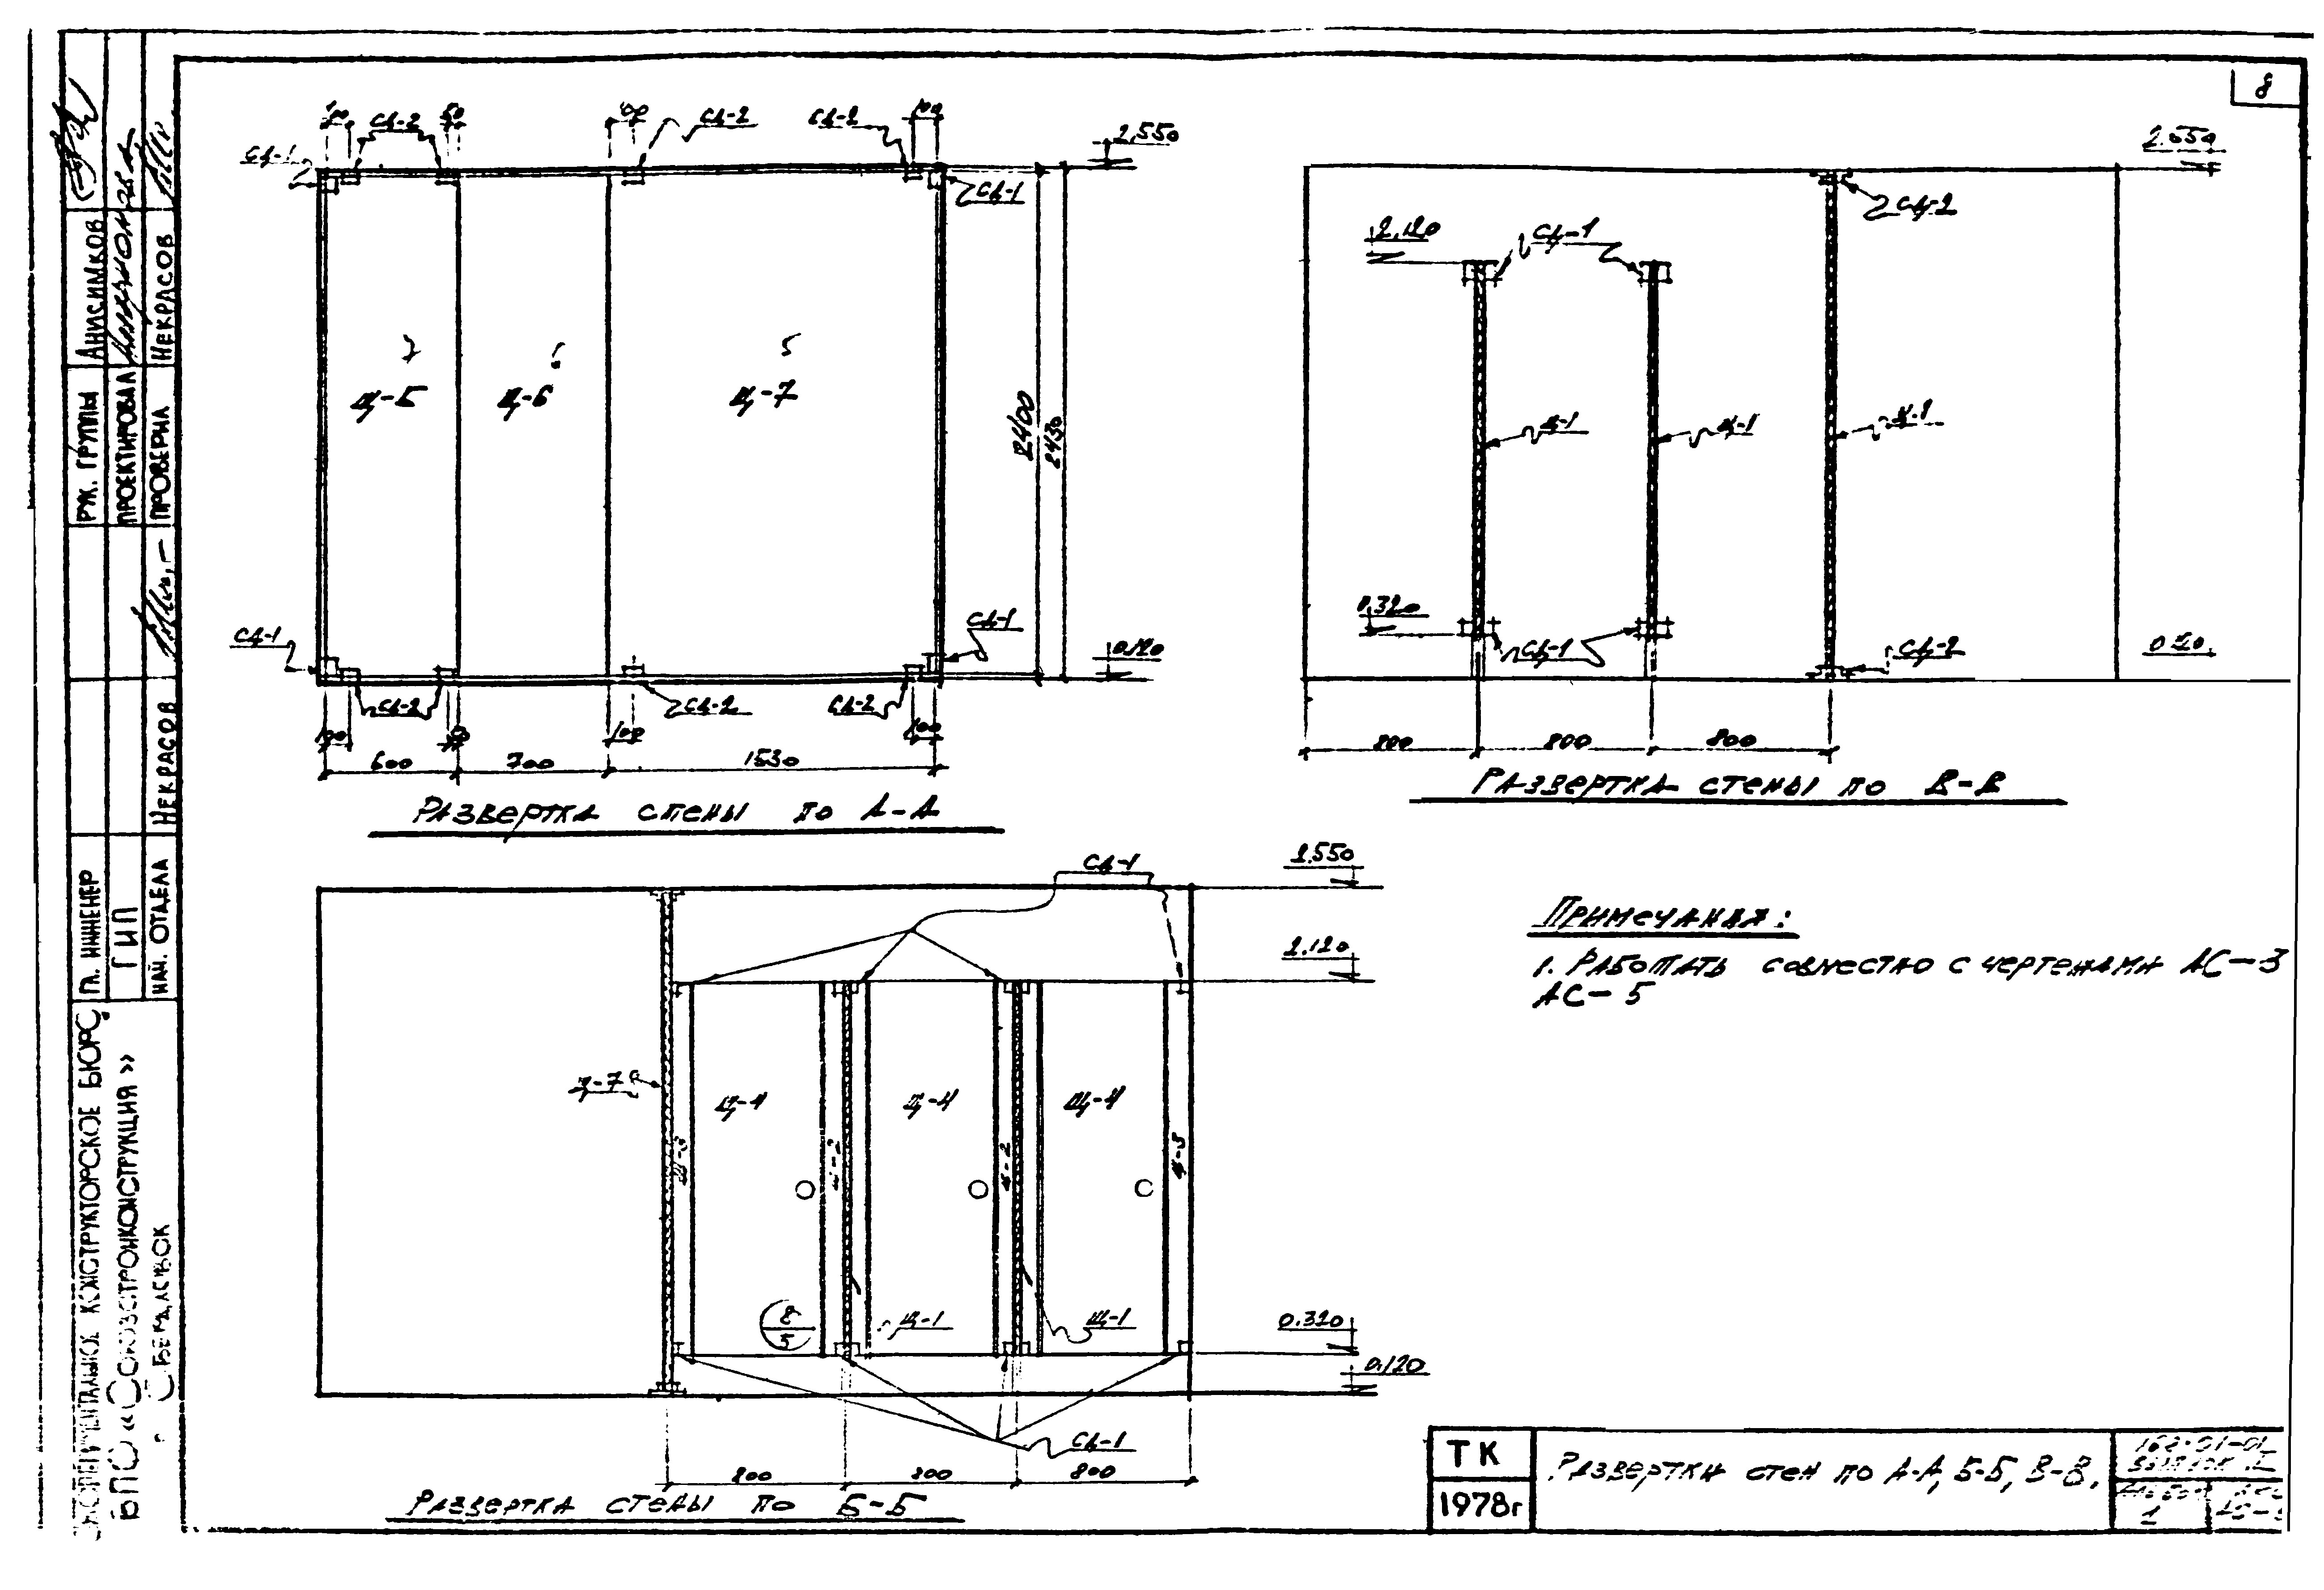 8
100
СД-2
50
100
СД-2
СД-2
100
СД-1
СД-1
2.550
7
6
5
Щ-5
Щ-6
Щ-7
2400
2430
СД-1
СД-1
0.120
СД-2
СД-2
СД-2
100
100
100
600
700
1530
Развертка стены по А-А
2.550
СД-2
2.120
СД-1
Щ-1
Щ-1
0.320
СД-1
СД-2
800
800
800
Развертка стены по В-В
СД-1
2.550
2.120
Щ-7
Щ-4
Щ-4
Щ-4
Щ-3
Щ-2
Щ-2
Щ-3
8
5
Щ-1
Щ-1
0.320
0.120
СД-1
800
800
800
Развертка стены по Б-Б
Примечания:
1. Работать совместно с чертежами АС-3
АС-5
ТК
1978г
Развертки стен по А-А, Б-Б, В-В.
1
Рук. группы
Анисимков
Проектировал
Проверил
Некрасов
Гл. инженер
ГИП
Нач. отдела
Некрасов
конструкторское бюро
ВПО «Союзстройконструкция»
г. Свердловск